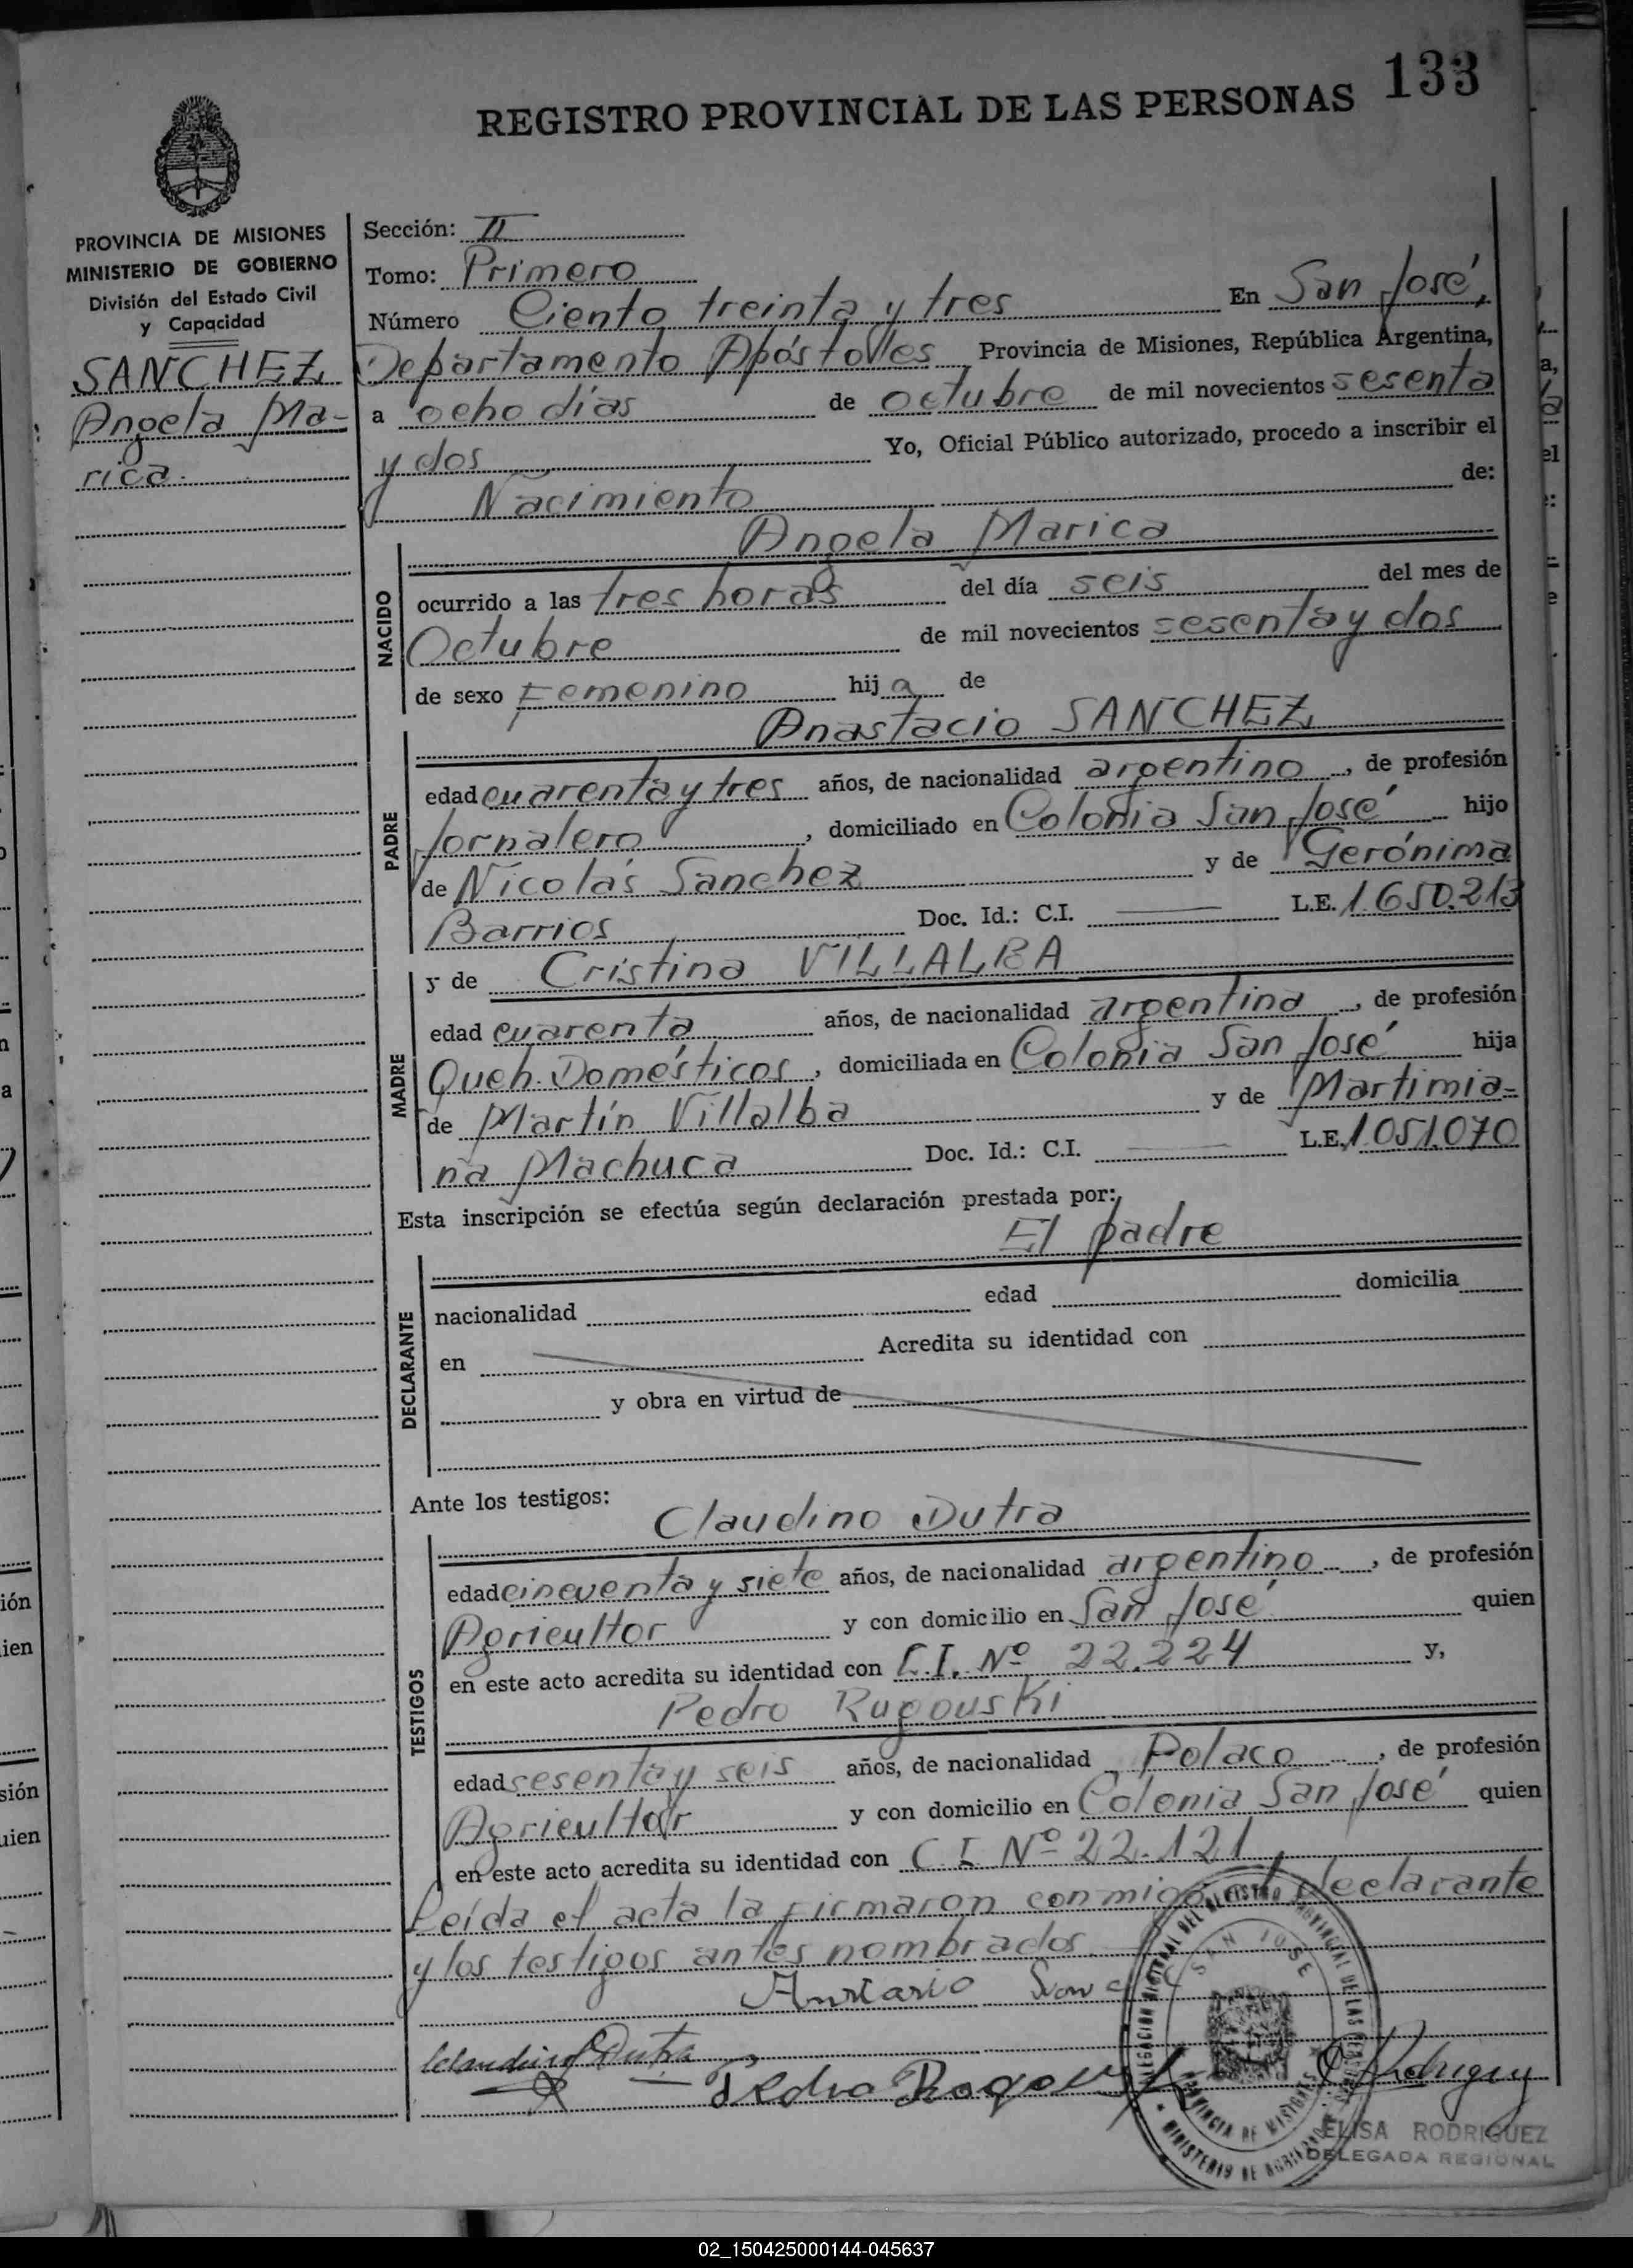 133
REGISTRO PROVINCIAL DE LAS PERSONAS
PROVINCIA DE MISIONES
MINISTERIO DE GOBIERNO
División del Estado Civil
y Capacidad
SANCHEZ
Angela Ma-
rica.
Sección: II
Tomo: Primero
Número Ciento treinta y tres En San José,
Departamento Apóstoles Provincia de Misiones, República Argentina,
a ocho días de octubre de mil novecientos sesenta
y dos Yo, Oficial Público autorizado, procedo a inscribir el
Nacimiento de:
Angela Marica
NACIDO
ocurrido a las tres horas del día seis del mes de
Octubre de mil novecientos sesenta y dos
de sexo Femenino hija de
Anastacio SANCHEZ
PADRE
edad cuarenta y tres años, de nacionalidad argentino, de profesión
Jornalero, domiciliado en Colonia San José hijo
de Nicolás Sanchez y de Gerónima
Barrios Doc. Id.: C.I. L.E. 1.650.213
y de Cristina VILLALBA
MADRE
edad cuarenta años, de nacionalidad argentina, de profesión
Queh. Domésticos, domiciliada en Colonia San José hija
de Martín Villalba y de Martimia-
na Machuca Doc. Id.: C.I. L.E. 1.051.070
Esta inscripción se efectúa según declaración prestada por:
El padre
DECLARANTE
nacionalidad edad domicilia
en Acredita su identidad con
y obra en virtud de
Ante los testigos:
Claudino Dutra
TESTIGOS
edad cincuenta y siete años, de nacionalidad argentino, de profesión
Agricultor y con domicilio en San José quien
en este acto acredita su identidad con C.I. Nº 22.224 y,
Pedro Rugouski
edad sesenta y seis años, de nacionalidad Polaco, de profesión
Agricultor y con domicilio en Colonia San José quien
en este acto acredita su identidad con C.I Nº 22.121
Leída el acta la firmaron conmigo el declarante
y los testigos antes nombrados.
Claudino Dutra
Pedro
SAN JOSE
PROVINCIA DE MISIONES
ELISA RODRIGUEZ
DELEGADA REGIONAL
02_150425000144-045637